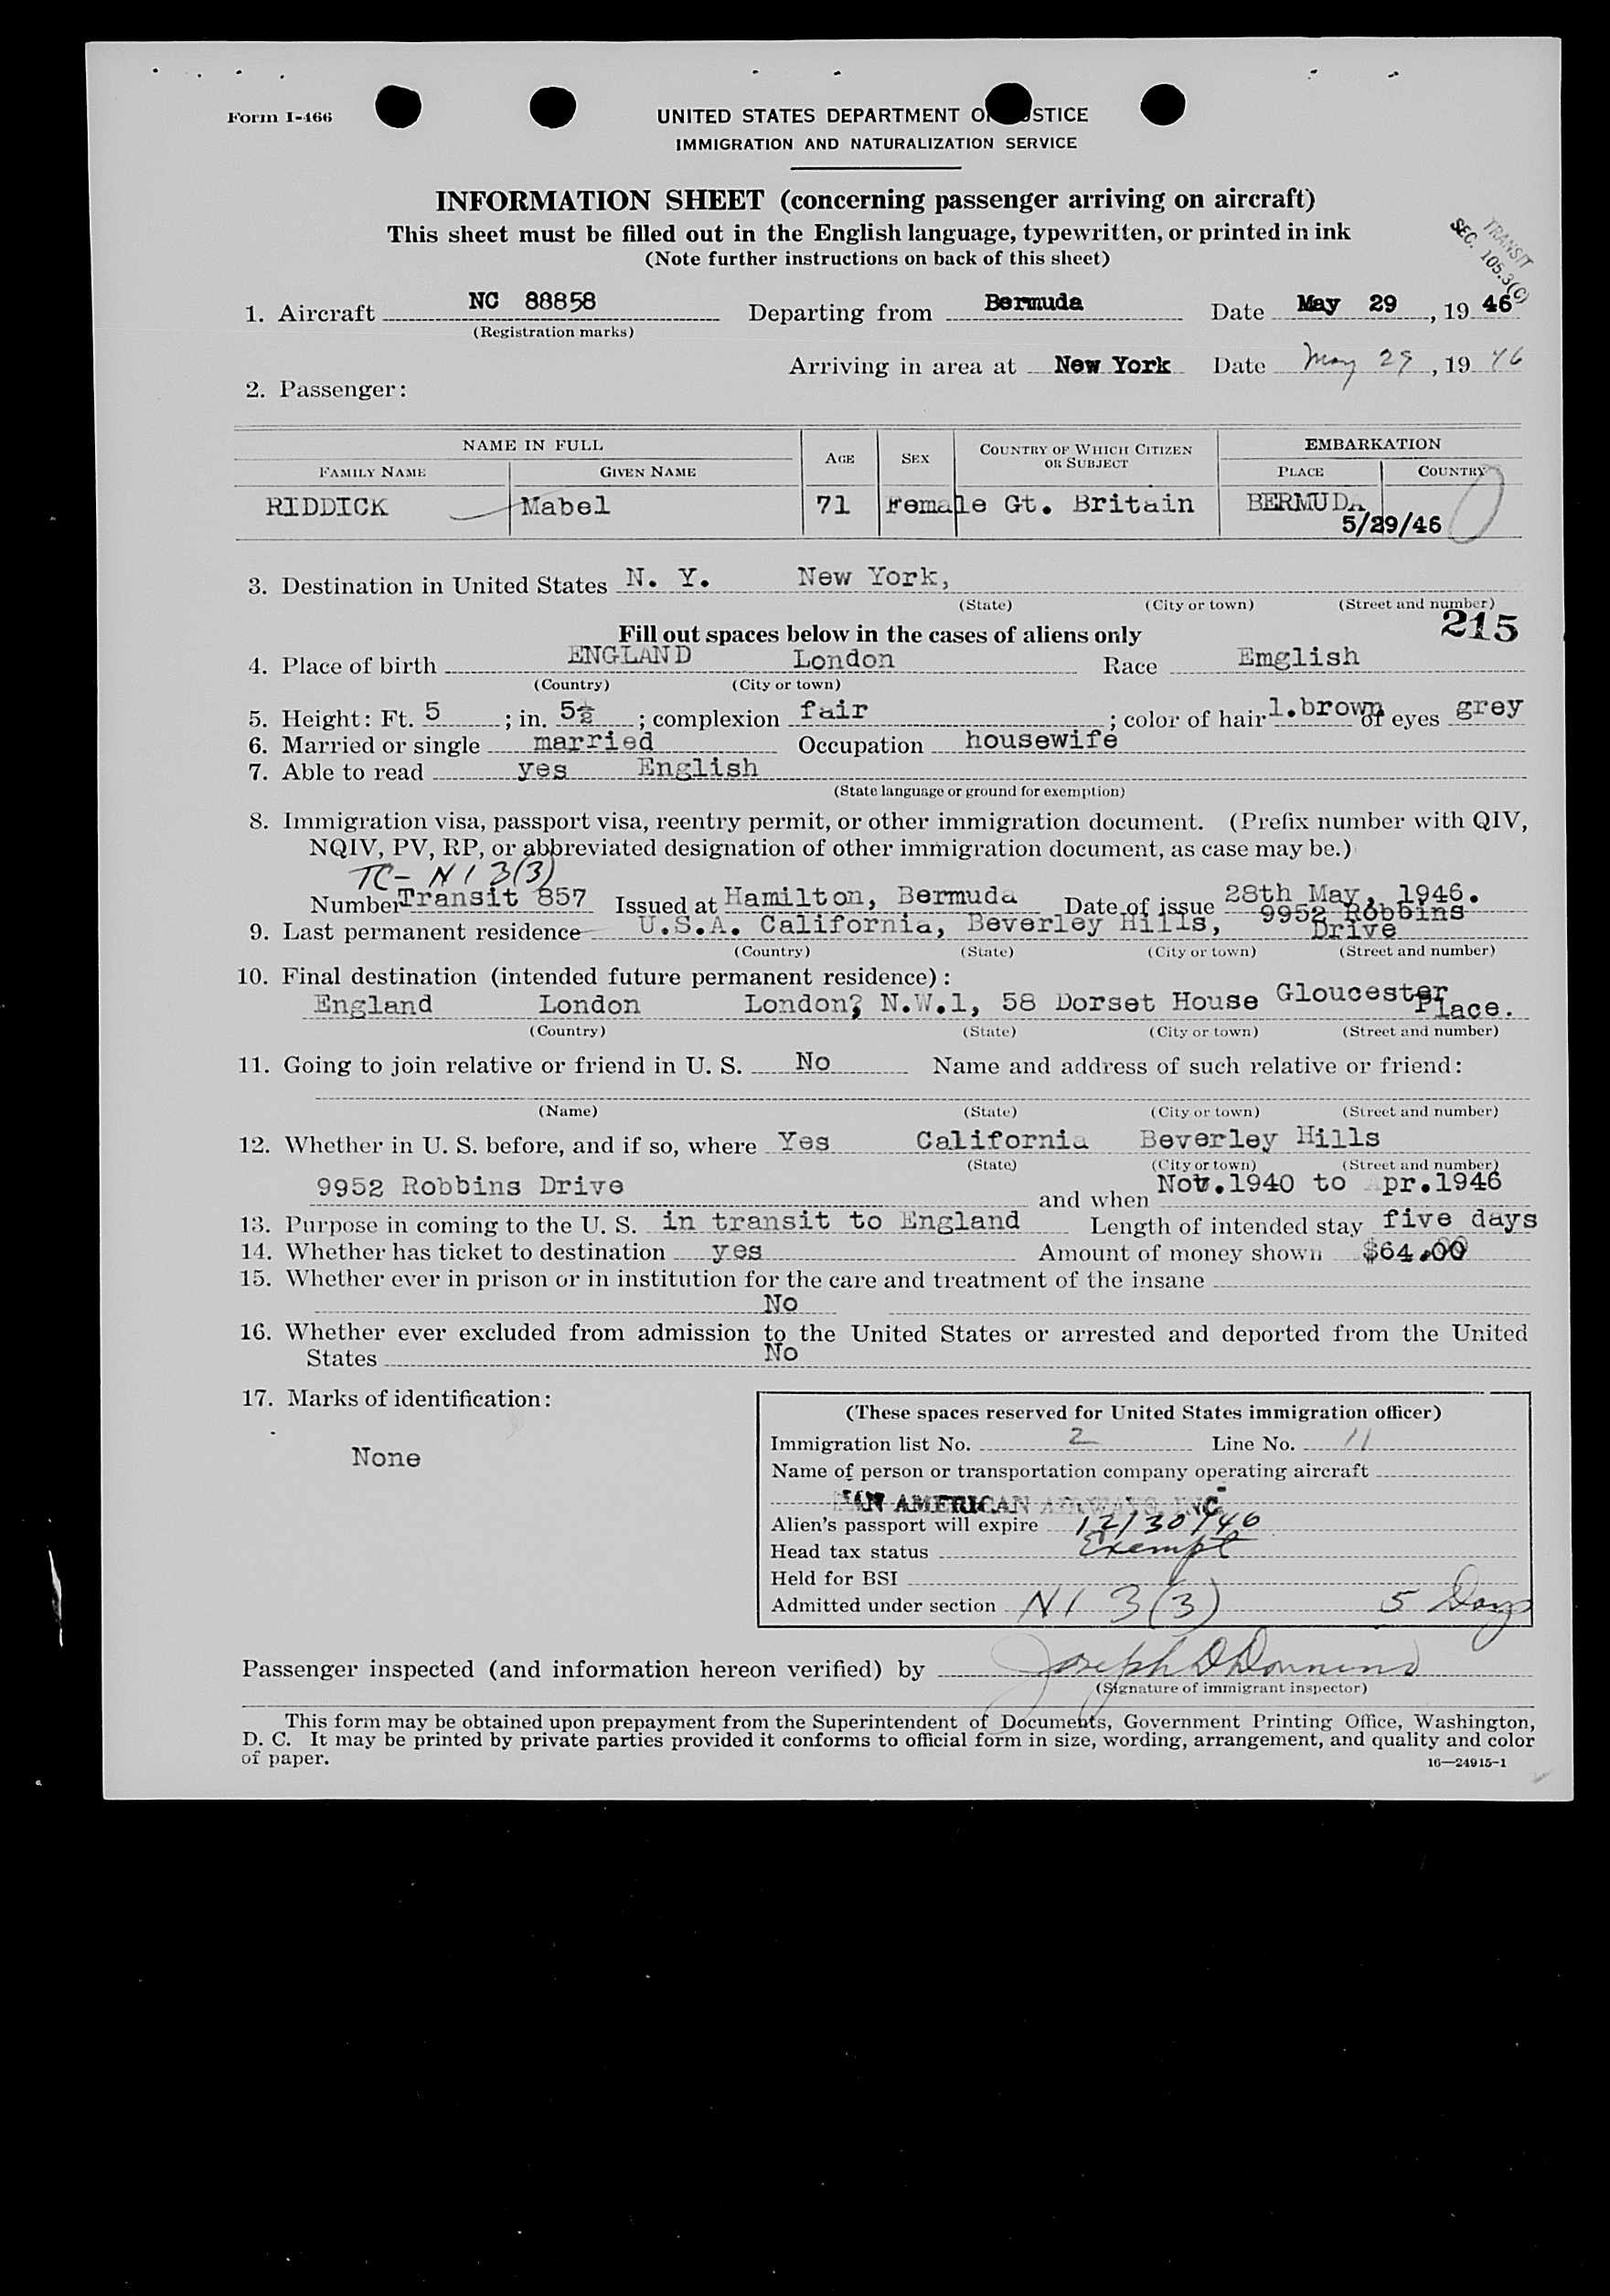 Form I-466
UNITED STATES DEPARTMENT OF JUSTICE
IMMIGRATION AND NATURALIZATION SERVICE
INFORMATION SHEET (concerning passenger arriving on aircraft)
This sheet must be filled out in the English language, typewritten, or printed in ink
(Note further instructions on back of this sheet)
TRANSIT
SEC. 105.3(C)
1. Aircraft NC 88858 Departing from Bermuda Date May 29, 19 46
(Registration marks)
Arriving in area at New York Date May 29, 19 46
2. Passenger:
NAME IN FULL AGE SEX COUNTRY OF WHICH CITIZEN OR SUBJECT EMBARKATION
FAMILY NAME GIVEN NAME PLACE COUNTRY
RIDDICK Mabel 71 Female Gt. Britain BERMUDA
5/29/46
3. Destination in United States N. Y. New York,
(State) (City or town) (Street and number)
215
Fill out spaces below in the cases of aliens only
4. Place of birth ENGLAND London Race Emglish
(Country) (City or town)
5. Height: Ft. 5; in. 5½; complexion fair; color of hair l.brown of eyes grey
6. Married or single married Occupation housewife
7. Able to read yes English
(State language or ground for exemption)
8. Immigration visa, passport visa, reentry permit, or other immigration document. (Prefix number with QIV,
NQIV, PV, RP, or abbreviated designation of other immigration document, as case may be.)
TC- N I 3(3)
Number Transit 857 Issued at Hamilton, Bermuda Date of issue 28th May, 1946.
9. Last permanent residence U.S.A. California, Beverley Hills, 9952 Robbins Drive
(Country) (State) (City or town) (Street and number)
10. Final destination (intended future permanent residence):
England London London? N.W.1, 58 Dorset House Gloucester Place.
(Country) (State) (City or town) (Street and number)
11. Going to join relative or friend in U. S. No Name and address of such relative or friend:
(Name) (State) (City or town) (Street and number)
12. Whether in U. S. before, and if so, where Yes California Beverley Hills
(State) (City or town) (Street and number)
9952 Robbins Drive and when Nov.1940 to Apr.1946
13. Purpose in coming to the U. S. in transit to England Length of intended stay five days
14. Whether has ticket to destination yes Amount of money shown $64.00
15. Whether ever in prison or in institution for the care and treatment of the insane
No
16. Whether ever excluded from admission to the United States or arrested and deported from the United
States No
17. Marks of identification:
None
(These spaces reserved for United States immigration officer)
Immigration list No. 2 Line No. 11
Name of person or transportation company operating aircraft
PAN AMERICAN AIRWAYS, INC
Alien's passport will expire 12/30/46
Head tax status Exempt
Held for BSI
Admitted under section N I 3(3) 5 Days
Passenger inspected (and information hereon verified) by Joseph D
(Signature of immigrant inspector)
This form may be obtained upon prepayment from the Superintendent of Documents, Government Printing Office, Washington,
D. C. It may be printed by private parties provided it conforms to official form in size, wording, arrangement, and quality and color
of paper.
16—24915-1